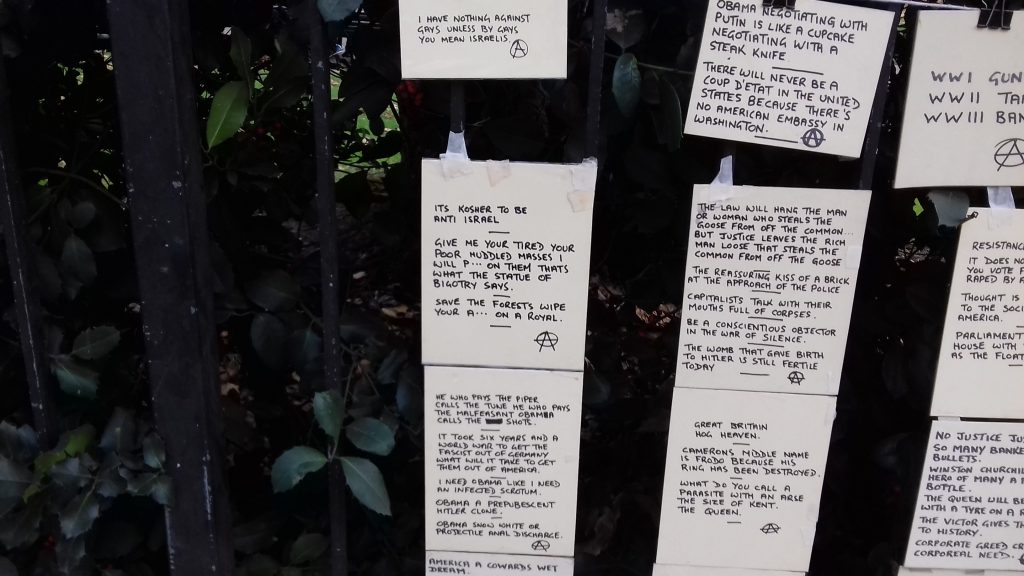 I HAVE NOTHING AGAINST
GAYS UNLESS BY GAYS
YOU MEAN ISRAELIS
ITS KOSHER TO BE
ANTI ISRAEL
GIVE ME YOUR TIRED YOUR
POOR HUDDLED MASSES I
WILL P... ON THEM THATS
WHAT THE STATUE OF
BIGOTRY SAYS.
SAVE THE FORESTS WIPE
YOUR A... ON A ROYAL.
HE WHO PAYS THE PIPER
CALLS THE TUNE HE WHO PAYS
THE MALFEASANT OBAMA
CALLS THE SHOTS.
IT TOOK SIX YEARS AND A
WORLD WAR TO GET THE
FASCIST OUT OF GERMANY
WHAT WILL IT TAKE TO GET
THEM OUT OF AMERICA.
I NEED OBAMA LIKE I NEED
AN INFECTED SCROTUM.
OBAMA A PREPUBESCENT
HITLER CLONE.
OBAMA SNOW WHITE OR
PROJECTILE ANAL DISCHARGE.
AMERICA A COWARDS WET
DREAM.
OBAMA NEGOTIATING WITH
PUTIN IS LIKE A CUPCAKE
NEGOTIATING WITH A
STEAK KNIFE.
THERE WILL NEVER BE A
COUP D'ETAT IN THE UNITED
STATES BECAUSE THERE'S
NO AMERICAN EMBASSY IN
WASHINGTON.
THE LAW WILL HANG THE MAN
OR WOMAN WHO STEALS THE
GOOSE FROM OFF THE COMMON...
BUT JUSTICE LEAVES THE RICH
MAN LOOSE THAT STEALS THE
COMMON FROM OFF THE GOOSE
THE REASSURING KISS OF A BRICK
AT THE APPROACH OF THE POLICE
CAPITALISTS TALK WITH THEIR
MOUTHS FULL OF CORPSES.
BE A CONSCIENTIOUS OBJECTOR
IN THE WAR OF SILENCE.
THE WOMB THAT GAVE BIRTH
TO HITLER IS STILL FERTILE
TODAY
GREAT BRITAIN
HOG HEAVEN.
CAMERONS MIDDLE NAME
IS FRODO BECAUSE HIS
RING HAS BEEN DESTROYED.
WHAT DO YOU CALL A
PARASITE WITH AN ARSE
THE SIZE OF KENT.
THE QUEEN.
WWI GUN
WWII TA
WWIII BAN
RESISTANC
IT DOES NO
YOU VOTE
RAPED BY
THOUGHT IS
TO THE SOC
AMERICA.
PARLIAMENT
HOUSE WITH
AS THE FLOAT
NO JUSTICE JU
SO MANY BANKE
BULLETS.
WINSTON CHURCHI
HERO OF MANY A
BOTTLE.
THE QUEEN WILL BE
WITH A TYRE ON A
THE VICTOR GIVES TH
TO HISTORY.
CORPORATE GREED CR
CORPOREAL NEED.